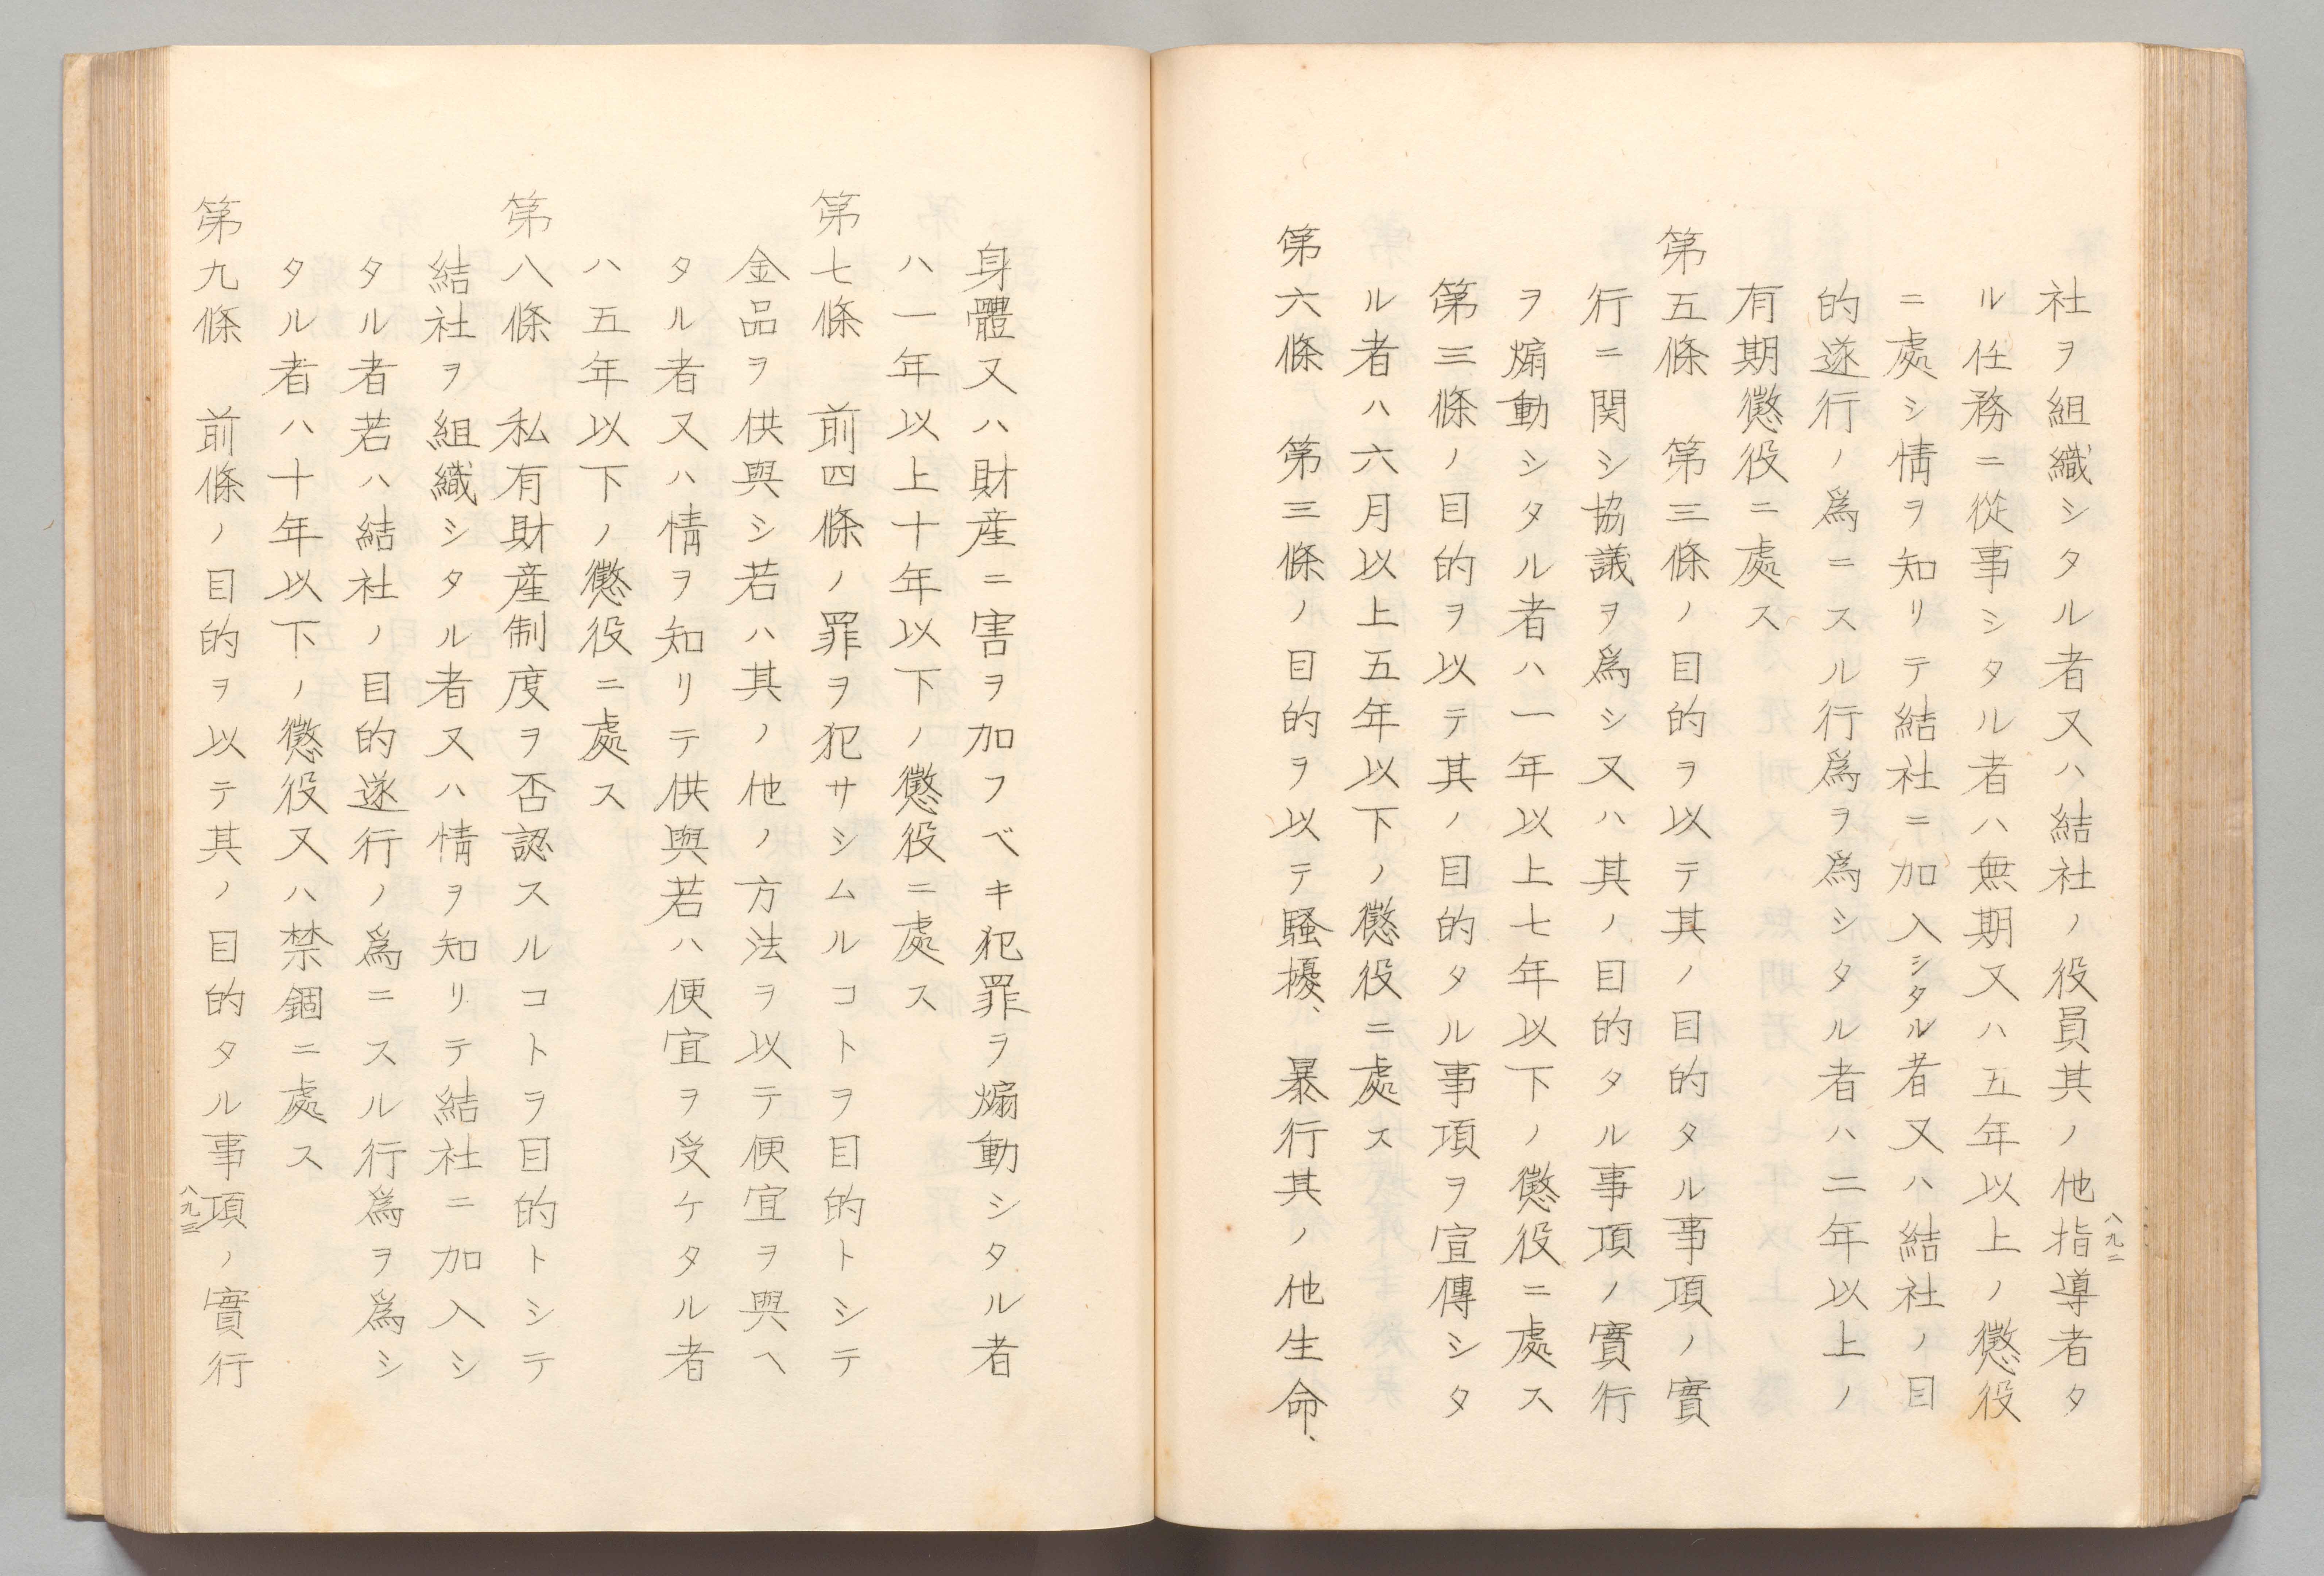 八九二
社ヲ組織シタル者又ハ結社ノ役員其ノ他指導者タ
ル任務ニ從事シタル者ハ無期又ハ五年以上ノ懲役
ニ處シ情ヲ知リテ結社ニ加入シタル者又ハ結社ノ目
的遂行ノ爲ニスル行爲ヲ爲シタル者ハ二年以上ノ
有期懲役ニ處ス
第五條　第三條ノ目的ヲ以テ其ノ目的タル事項ノ實
行ニ関シ協議ヲ爲シ又ハ其ノ目的タル事項ノ實行
ヲ煽動シタル者ハ一年以上七年以下ノ懲役ニ處ス
第三條ノ目的ヲ以テ其ノ目的タル事項ヲ宣傳シタ
ル者ハ六月以上五年以下ノ懲役ニ處ス
第六條　第三條ノ目的ヲ以テ騒擾、暴行其ノ他生命、
身體又ハ財産ニ害ヲ加フベキ犯罪ヲ煽動シタル者
ハ一年以上十年以下ノ懲役ニ處ス
第七條　前四條ノ罪ヲ犯サシムルコトヲ目的トシテ
金品ヲ供與シ若ハ其ノ他ノ方法ヲ以テ便宜ヲ與ヘ
タル者又ハ情ヲ知リテ供與若ハ便宜ヲ受ケタル者
ハ五年以下ノ懲役ニ處ス
第八條　私有財産制度ヲ否認スルコトヲ目的トシテ
結社ヲ組織シタル者又ハ情ヲ知リテ結社ニ加入シ
タル者若ハ結社ノ目的遂行ノ爲ニスル行爲ヲ爲シ
タル者ハ十年以下ノ懲役又ハ禁錮ニ處ス
第九條　前條ノ目的ヲ以テ其ノ目的タル事項ノ實行
八九三